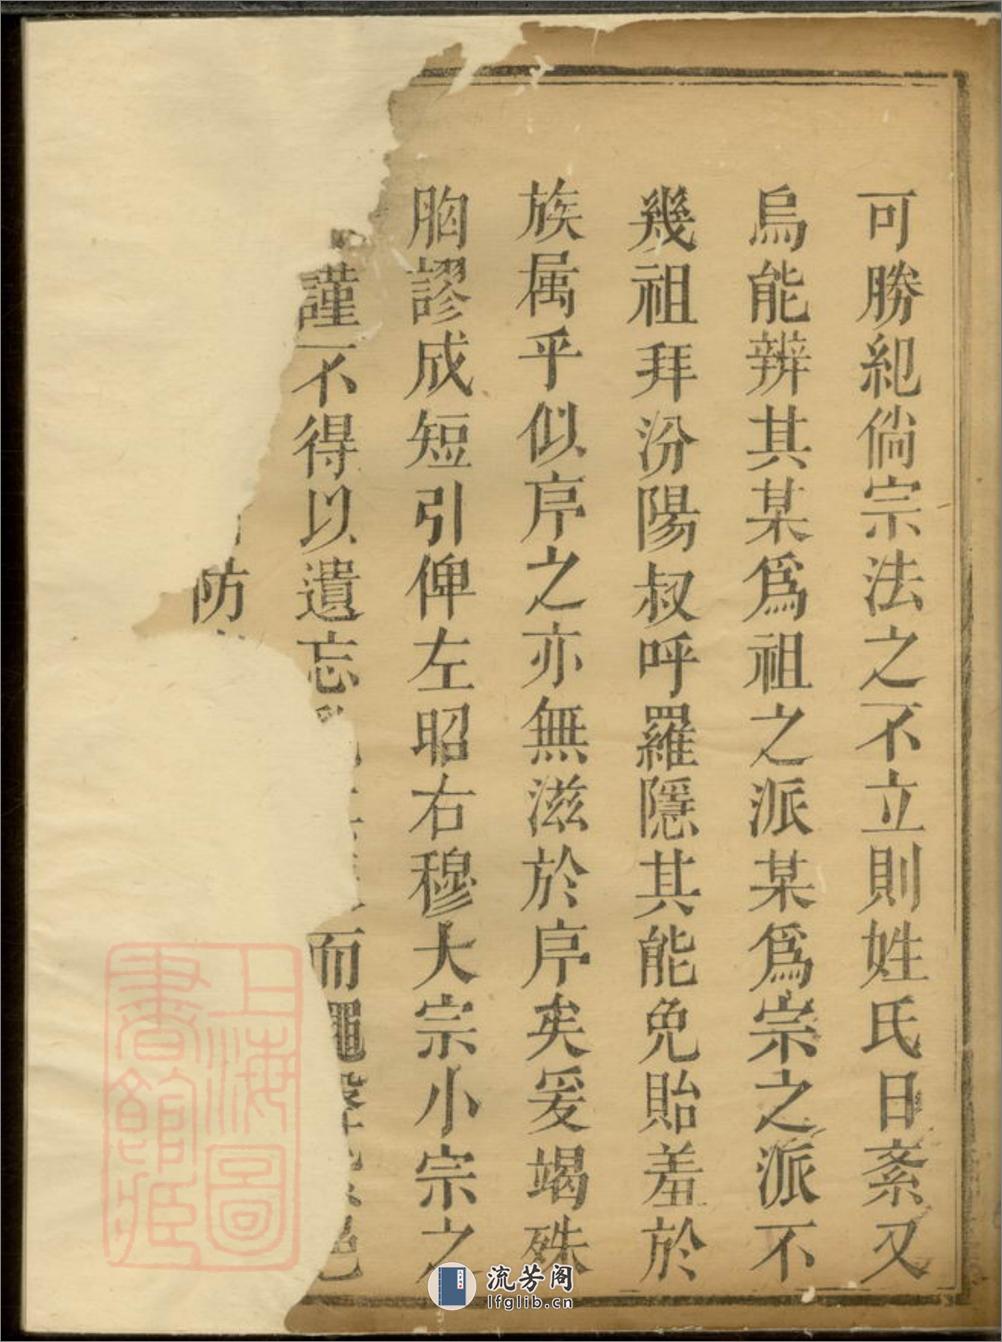 可勝紀倘宗法之不立則姓氏日紊又
烏能辨其某爲祖之派某爲宗之派不
幾祖拜汾陽叔呼羅隱其能免貽羞於
族属乎似序之亦無滋於序矣爰竭殊
胸謬成短引俾左昭右穆大宗小宗之
謹不得以遺忘而繩
防
上海圖書館藏
流芳阁
lfglib.cn